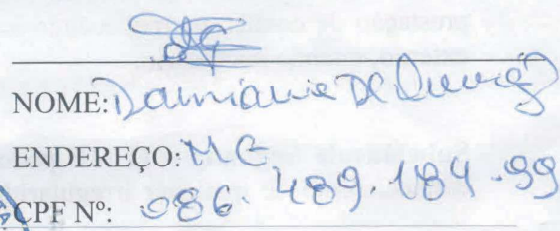 NOME: Damiana De
ENDEREÇO: MG
CPF Nº: 086.489.184-99